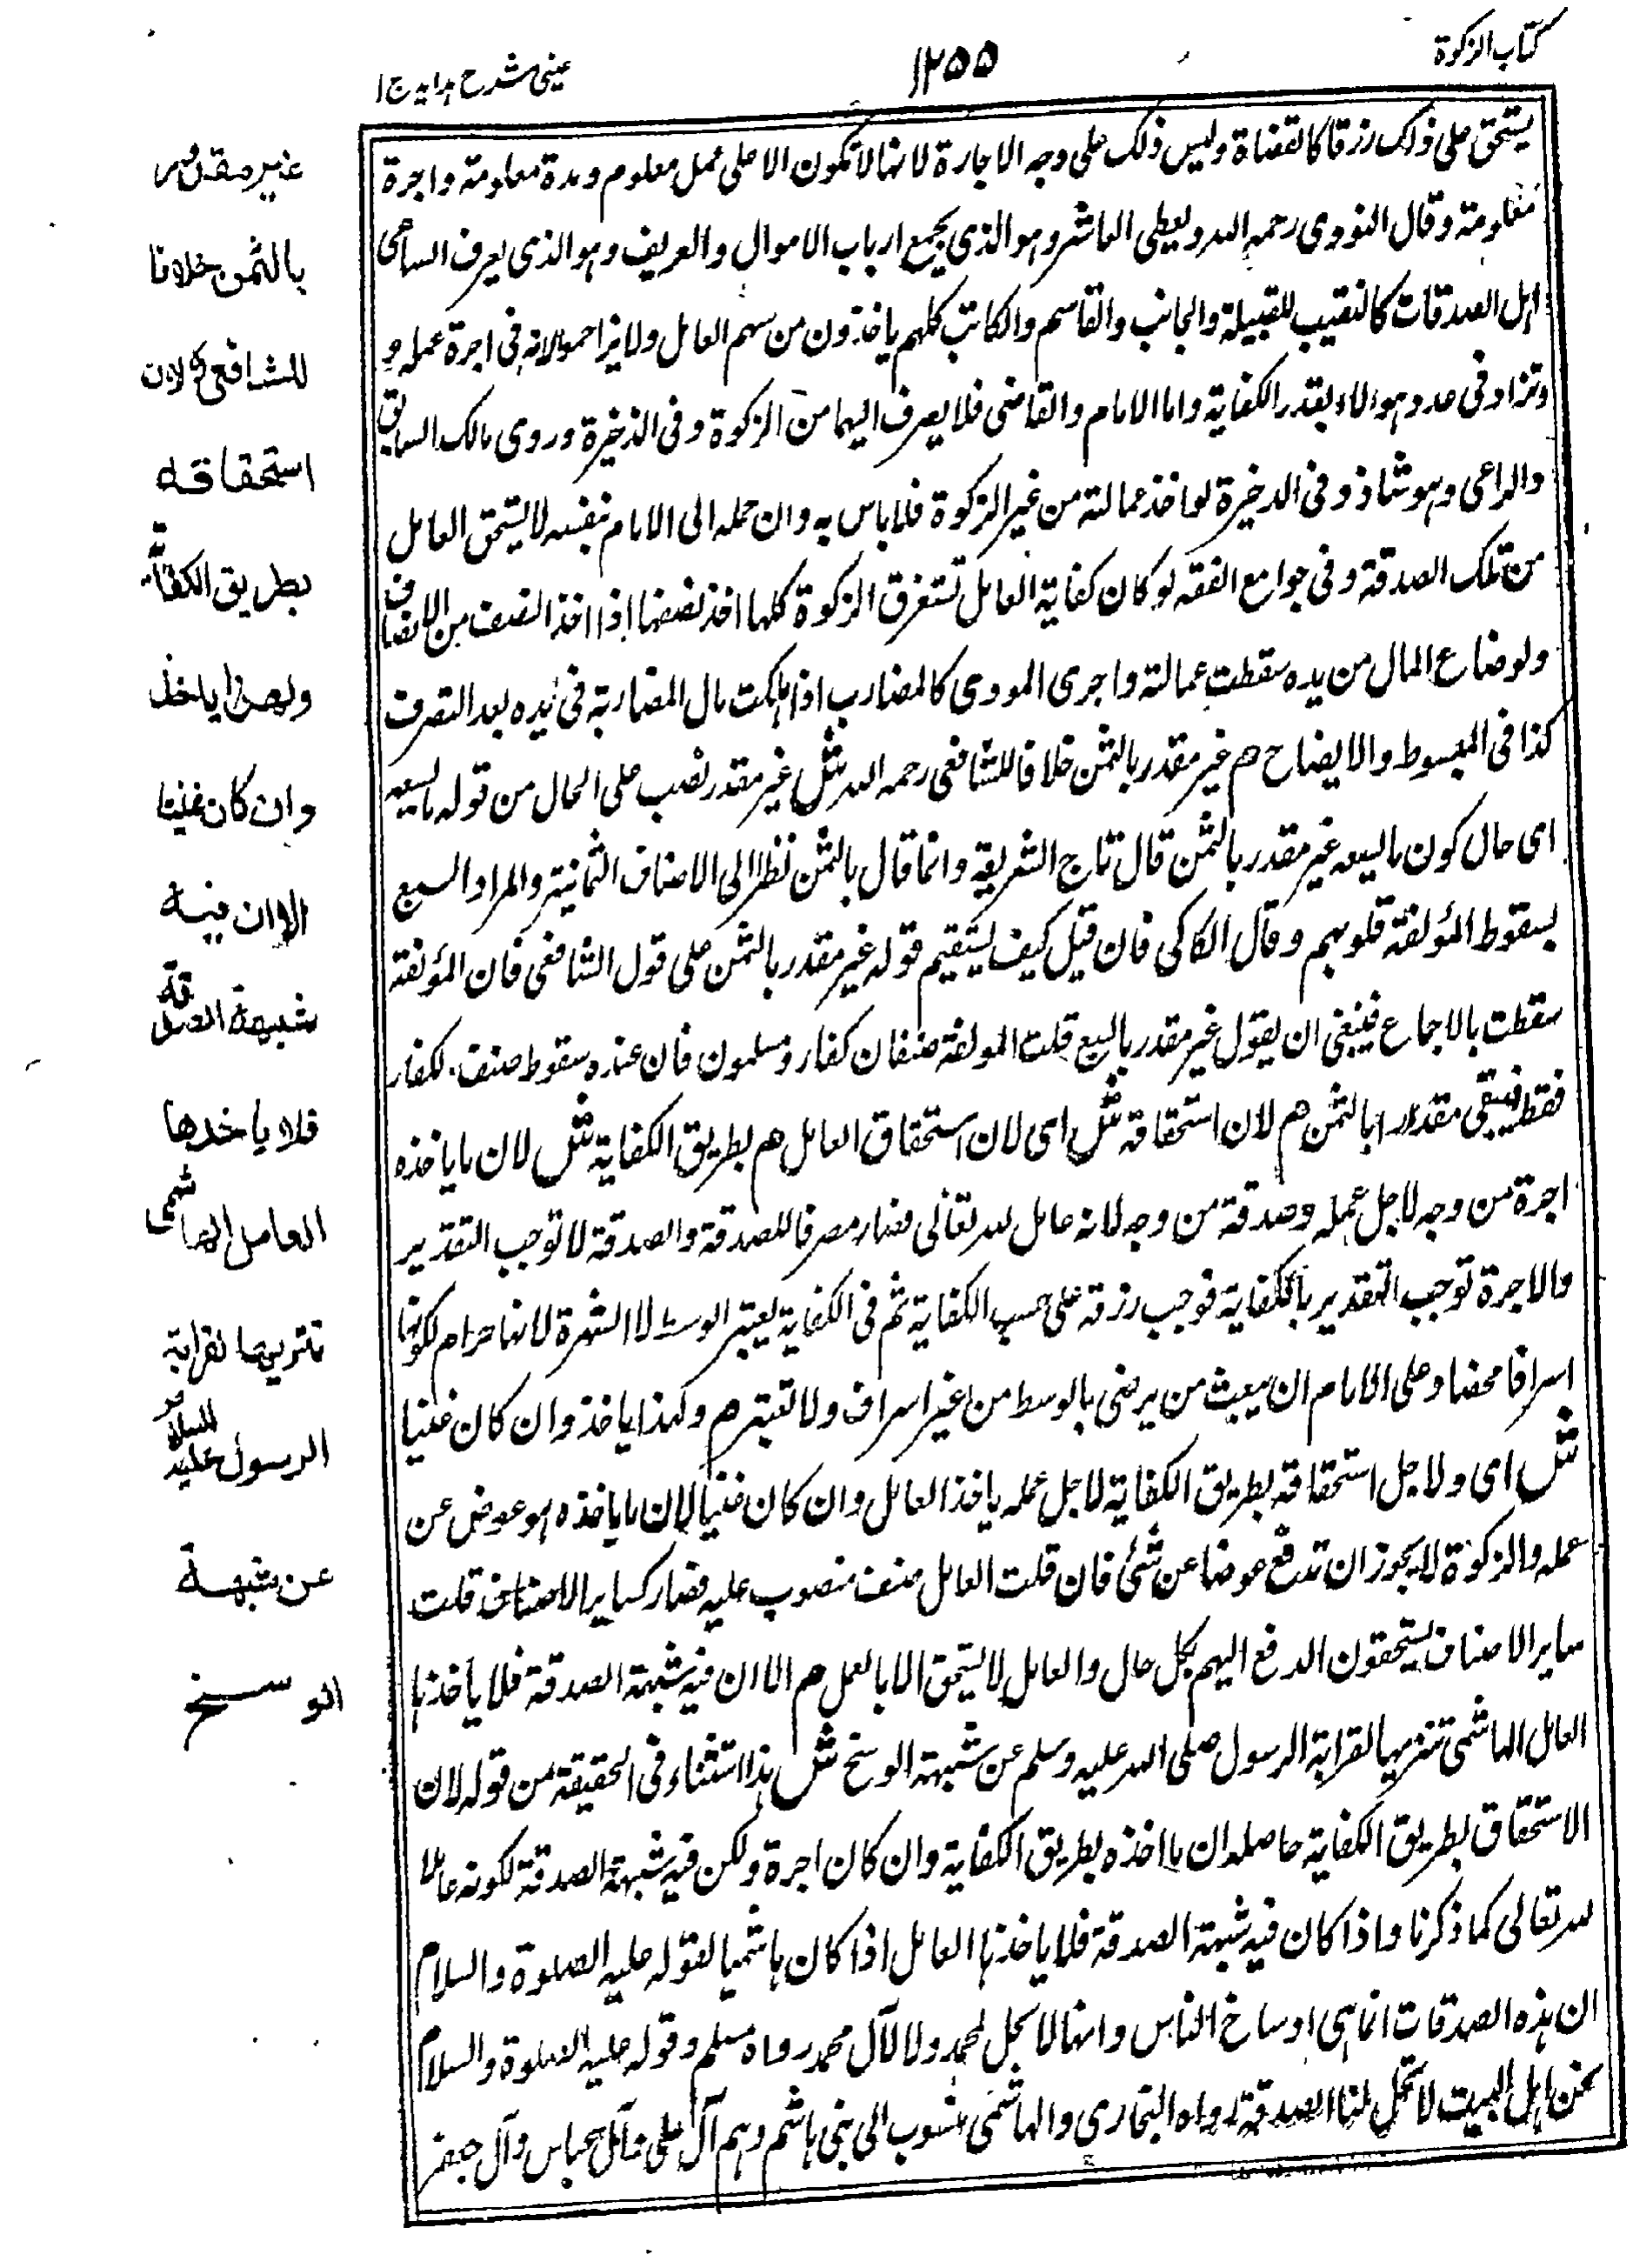 كتاب الزكوة
١٢٥٥
عينى شرح هدايه ج ا
يستحق على ذلك رزقا كالقضاة وليس ذلك على وجه الاجارة لانها لا تكون الا على عمل معلوم ومدة معلومة واجرة
معلومة وقال النووى رحمه الله ويعطى العاشر وهو الذى يجمع ارباب الاموال والعريف وهو الذى يعرف الساعى
اهل الصدقات كالنقيب للقبيلة والجانب والقاسم والكاتب كلهم ياخذون من سهم العامل ولا يزاحمو لانه فى اجرة عمله و
وتزاد فى عدد هولاء بقدر الكفاية واما الامام والقاضى فلا يصرف اليهما من الزكوة وفى الذخيرة وروى مالك السابق
والراعى وهو شاذ وفى الدخيرة لو اخذ عمالته من غير الزكوة فلا باس به وان حمله الى الامام بنفسه لا يستحق العامل
من تلك الصدقة وفى جوامع الفقه لو كان كفاية العامل تستغرق الزكوة كلها اخذ نصفها اذا اخذ النصف من الانصاف
ولو ضاع المال من يده سقطت عمالته واجرى المودى كالمضارب اذا هلكت مال المضاربة فى يده بعد التصرف
كذا فى المبسوط والايضاح هم غير مقدر بالثمن خلافا للشافعى رحمه الله ش غير مقدر نصب على الحال من قوله ما يسعه
اى حال كون ما يسعه غير مقدر بالثمن قال تاج الشريعة وانما قال بالثمن نظرا الى الاصناف الثمانية والمراد السبع
بسقوط المؤلفة قلوبهم وقال الكاكى فان قيل كيف يستقيم قوله غير مقدر بالثمن على قول الشافعى فان المؤلفة
سقطت بالاجماع فينبغى ان يقول غير مقدر بالسبع قلت المولفة صنفان كفار ومسلمون فان عنده سقوط صنف الكفار
فقط فيبقى مقدرا بالثمن هم لان استحقاقه ش اى لان استحقاق العامل هم بطريق الكفاية ش لان ما ياخذه
اجرة من وجه لاجل عمله وصدقة من وجه لانه عامل لله تعالى فصار مصرفا للصدقة والصدقة لا توجب التقدير
والاجرة توجب التقدير بالكفاية فوجب رزقه على حسب الكفاية ثم فى الكفاية يعتبر الوسط لا الشهرة لانها حرام لكونها
اسرافا محضا وعلى الامام ان يبعث من يرضى بالوسط من غير اسراف ولا تقتير هم ولهذا ياخذ وان كان غنيا
ش اى ولاجل استحقاقه بطريق الكفاية لاجل عمله ياخذ العامل وان كان غنيا لان ما ياخذه هو عوض عن
عمله والزكوة لا يجوز ان تدفع عوضا عن شئ فان قلت العامل صنف منصوب عليه فصار كساير الاصناف قلت
ساير الاصناف يستحقون الدفع اليهم بكل حال والعامل لا يستحق الا بالعمل هم الا ان فيه شبهة الصدقة فلا ياخذها
العامل الهاشمى تنزيها لقرابة الرسول صلى الله عليه وسلم عن شبهة الوسخ ش هذا استثناء فى الحقيقة من قوله لان
الاستحقاق بطريق الكفاية حاصله ان ما اخذه بطريق الكفاية وان كان اجرة ولكن فيه شبهة الصدقة لكونه عاملا
لله تعالى كما ذكرنا واذا كان فيه شبهة الصدقة فلا ياخذها العامل اذا كان هاشميا لقوله عليه الصلوة والسلام
ان هذه الصدقات انما هى اوساخ الناس وانها لا تحل لمحمد ولا لآل محمد رواه مسلم وقوله عليه الصلوة والسلام
نحن اهل البيت لا تحل لنا الصدقة رواه البخارى والهاشمى منسوب الى بنى هاشم وهم آل على وآل عباس وآل جعفر
غير مقدر
بالثمن خلافا
للشافعى لان
استحقاقه
بطريق الكفاية
ولهذا ياخذ
وان كان غنيا
الا ان فيه
شبهة الصدقة
فلا ياخذها
العامل الهاشمى
تنزيها لقرابة
الرسول عليه السلام
عن شبهة
الوسخ